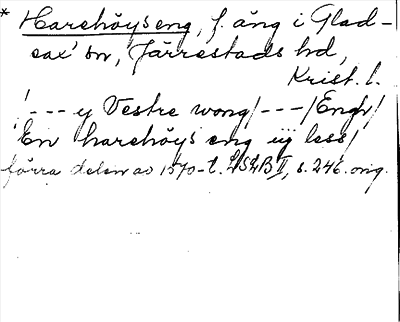 * Harehöys eng, f. äng i Glad-
sax' sn, Järrestads hd,
Krist. l.
/--- y Vestre wong/---/Engh/
En harehöys eng iij less/
förra delen av 1570-t. LSLB II, s. 246. orig.